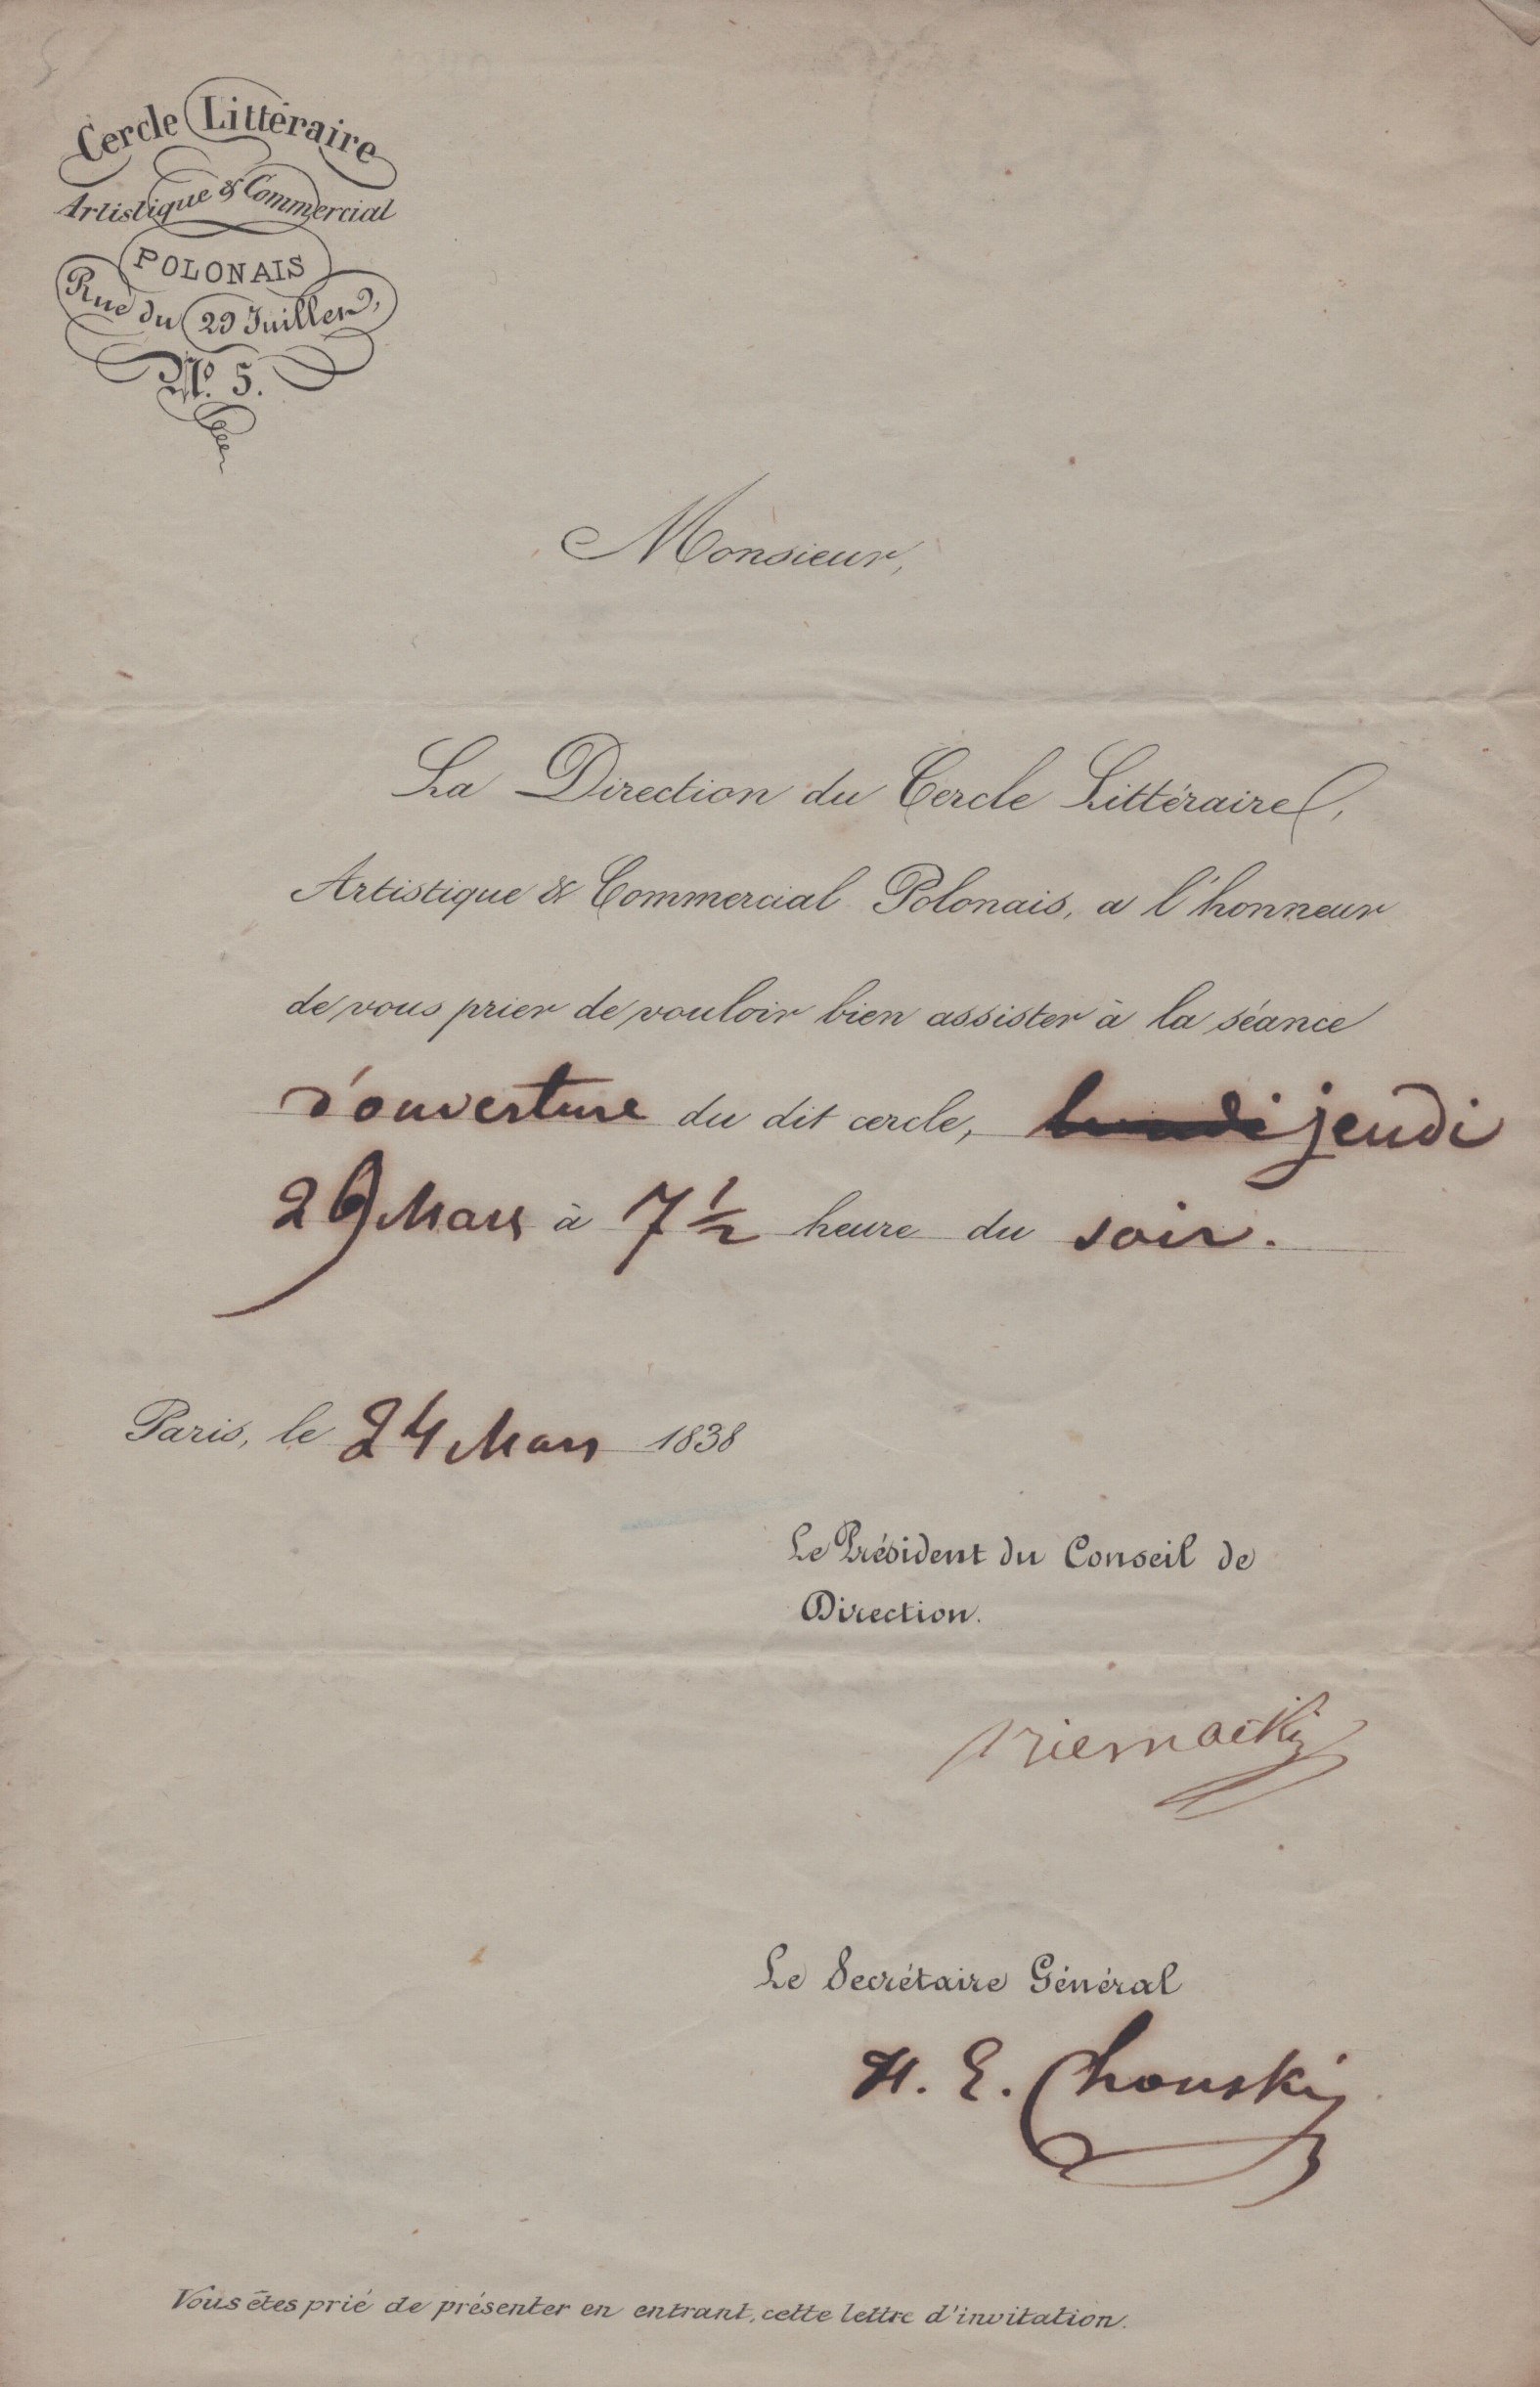 Cercle Littéraire
Artistique & Commercial
POLONAIS
Rue du 29 Juillet,
N.º 5.
Monsieur,
La Direction du Cercle Littéraire,
Artistique & Commercial Polonais, a l'honneur
de vous prier de vouloir bien assister à la séance
d'ouverture du dit cercle, lundi jeudi
29 Mars à 7 ½ heure du soir.
Paris, le 24 Mars 1838
Le Président du Conseil de
Direction.
Le Secrétaire Général
H. E. Chonski
Vous êtes prié de présenter en entrant, cette lettre d'invitation.